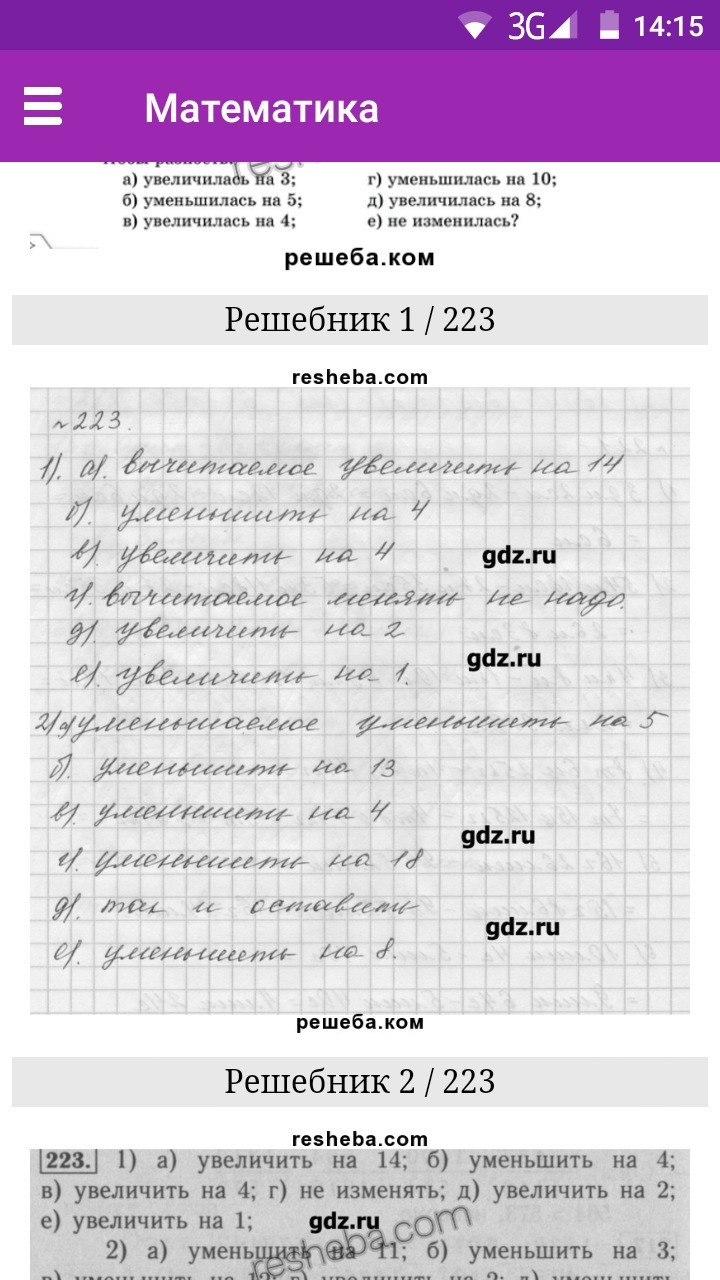 3G 14:15
Математика
а) увеличилась на 3; г) уменьшилась на 10;
б) уменьшилась на 5; д) увеличилась на 8;
в) увеличилась на 4; е) не изменилась?
решеба.ком
Решебник 1 / 223
resheba.com
№ 223.
1). а). вычитаемое увеличить на 14
б). уменьшить на 4
в). увеличить на 4
gdz.ru
г). вычитаемое менять не надо.
д). увеличить на 2
gdz.ru
е). увеличить на 1.
2) а) уменьшаемое уменьшить на 5
б). уменьшить на 13
в). уменьшить на 4
gdz.ru
г). уменьшить на 18
д). так и оставить
gdz.ru
е). уменьшить на 8.
решеба.ком
Решебник 2 / 223
resheba.com
223. 1) а) увеличить на 14; б) уменьшить на 4;
в) увеличить на 4; г) не изменять; д) увеличить на 2;
е) увеличить на 1;
gdz.ru
resheba.com
2) а) уменьшить на 11; б) уменьшить на 3;